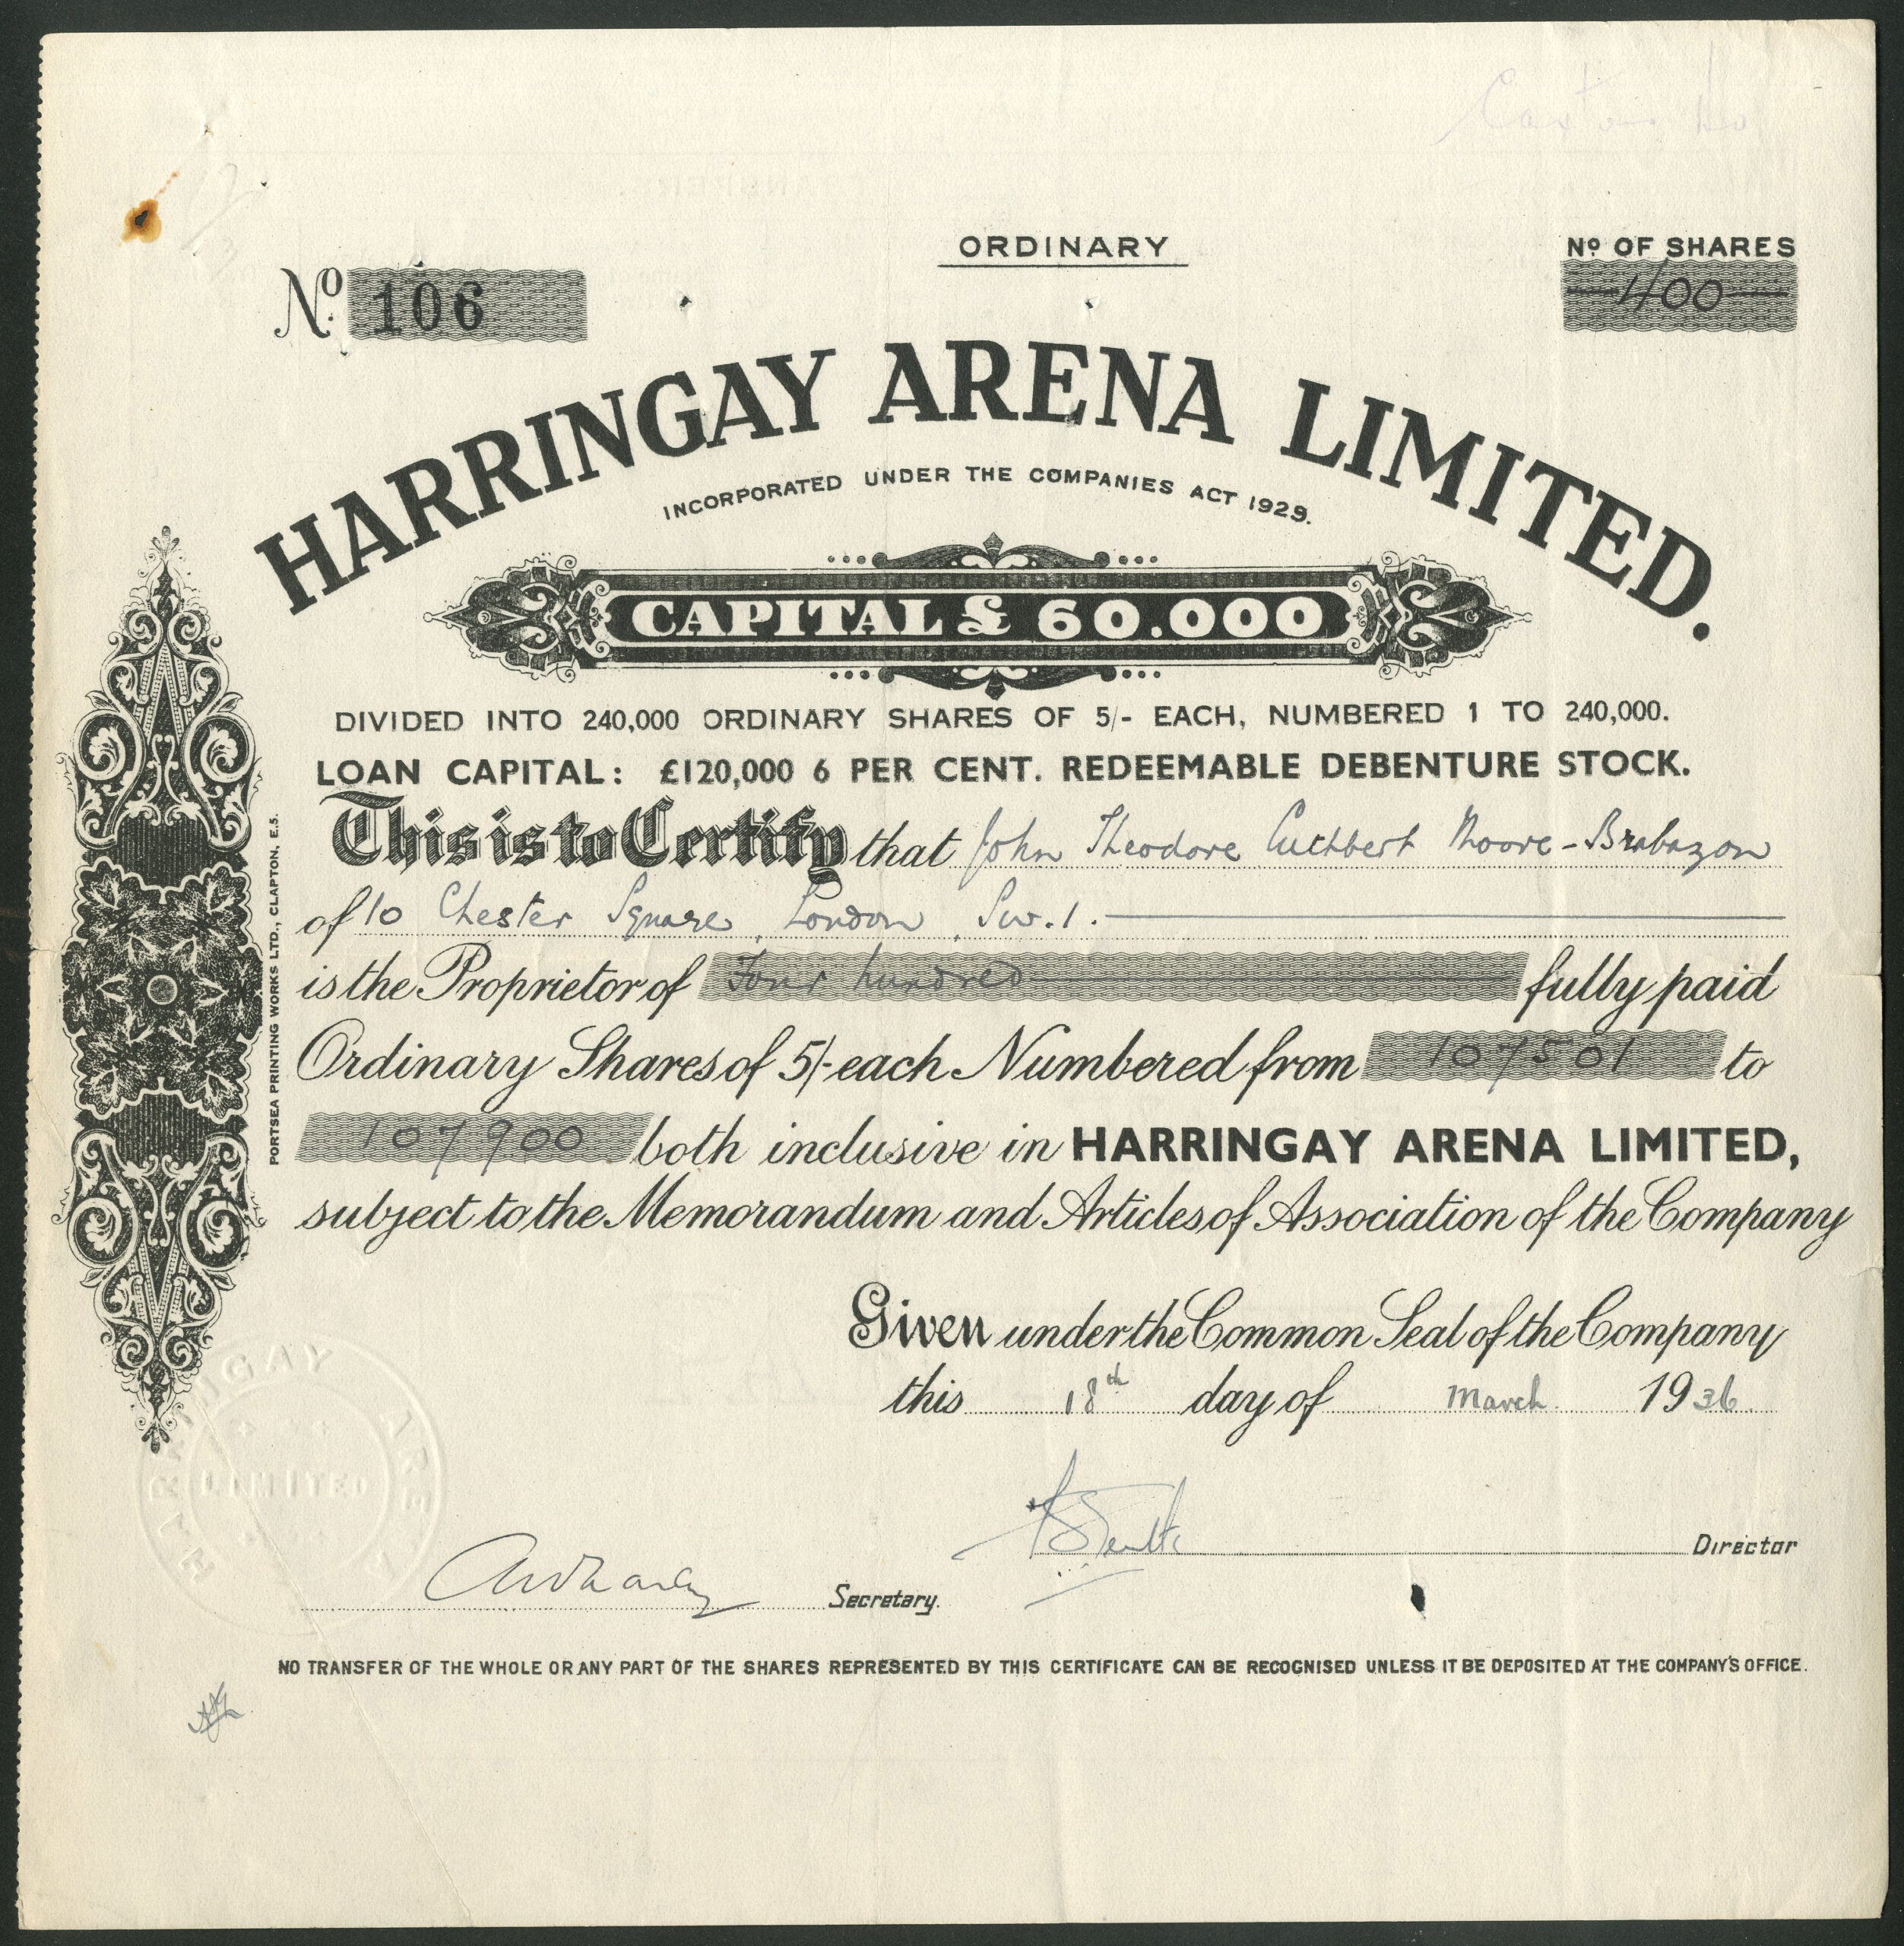 ORDINARY
Nº OF SHARES
400
Nº 106
HARRINGAY ARENA LIMITED.
INCORPORATED UNDER THE COMPANIES ACT 1929.
CAPITAL £ 60.000
DIVIDED INTO 240,000 ORDINARY SHARES OF 5/- EACH, NUMBERED 1 TO 240,000.
LOAN CAPITAL: £120,000 6 PER CENT. REDEEMABLE DEBENTURE STOCK.
This is to Certify that John Theodore Cuthbert Moore-Brabazon
of 10 Chester Square, London, S.W.1.
is the Proprietor of Four hundred fully paid
Ordinary Shares of 5/- each Numbered from 107501 to
107900 both inclusive in HARRINGAY ARENA LIMITED,
subject to the Memorandum and Articles of Association of the Company
Given under the Common Seal of the Company
this 18th day of March 1936
Director
Secretary.
NO TRANSFER OF THE WHOLE OR ANY PART OF THE SHARES REPRESENTED BY THIS CERTIFICATE CAN BE RECOGNISED UNLESS IT BE DEPOSITED AT THE COMPANY'S OFFICE.
PORTSEA PRINTING WORKS LTD., CLAPTON, E.5.
HARRINGAY ARENA
LIMITED